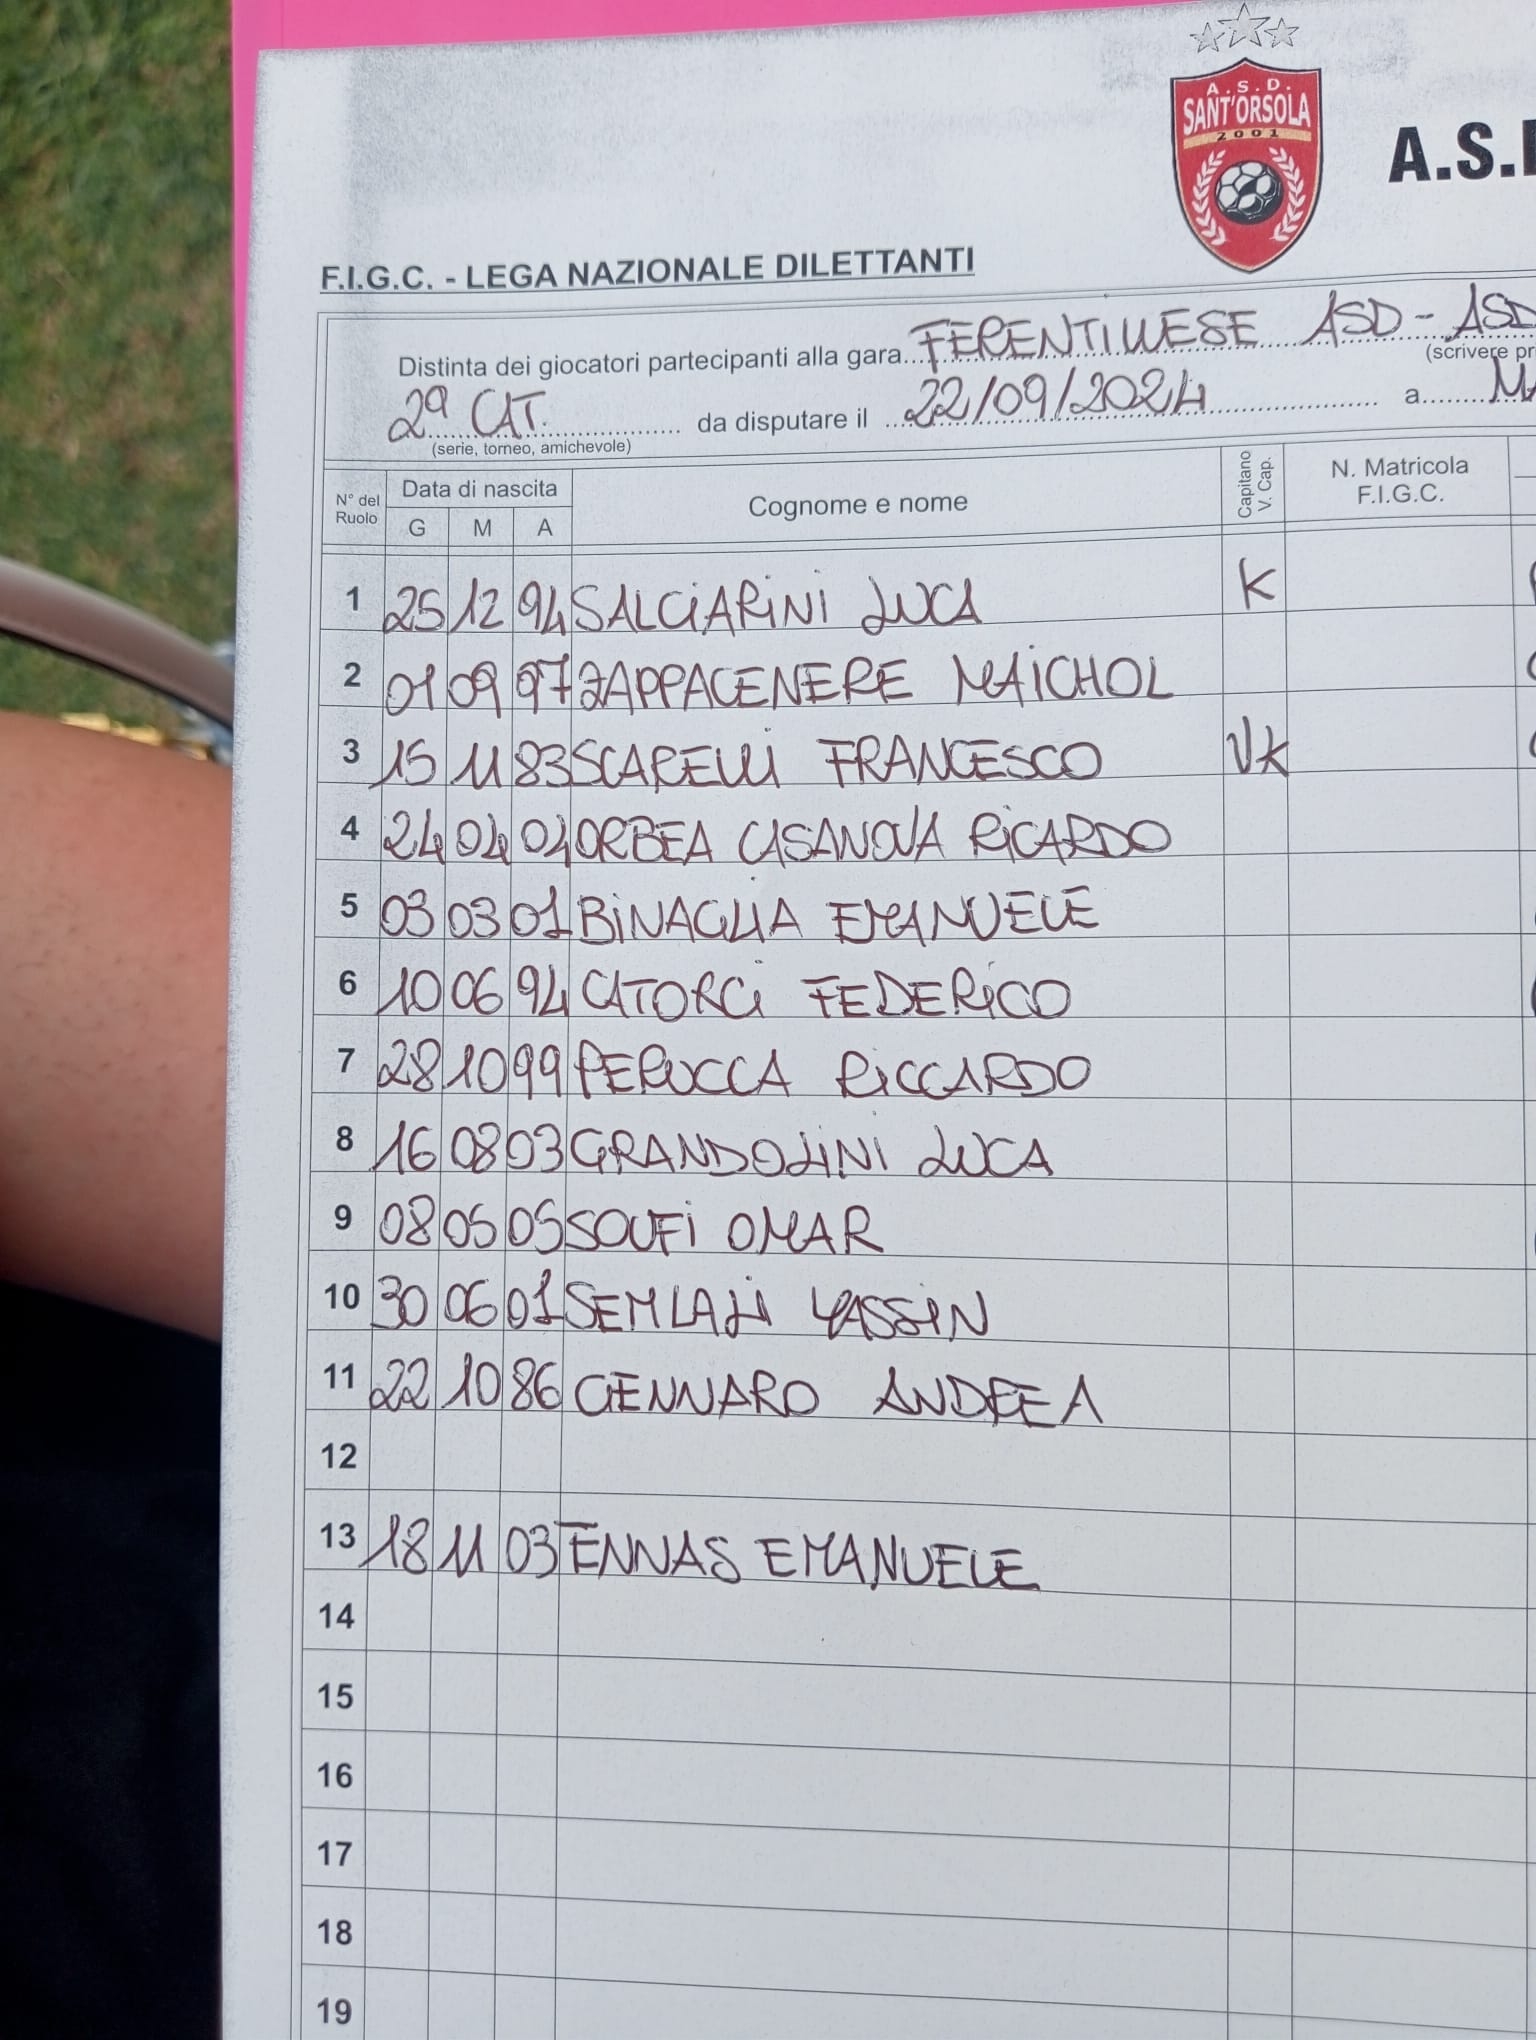 A.S.D.
SANT'ORSOLA
2001
A.S.
F.I.G.C. - LEGA NAZIONALE DILETTANTI
Distinta dei giocatori partecipanti alla gara FERENTILLESE ASD - ASD
(scrivere pr
2ª CAT. da disputare il 22/09/2024 a MA
(serie, torneo, amichevole)
N° del Ruolo Data di nascita Cognome e nome Capitano V. Cap. N. Matricola F.I.G.C.
G M A
1 25 12 94 SALCIARINI LUCA K
2 01 09 97 ZAPPACENERE MAICHOL
3 15 11 83 SCARELLI FRANCESCO VK
4 24 04 04 ORBEA CASANOVA RICARDO
5 03 03 01 BINAGLIA EMANUELE
6 10 06 94 CATORCI FEDERICO
7 28 10 99 PERUCCA RICCARDO
8 16 08 03 GRANDOLINI LUCA
9 08 05 05 SOUFI OMAR
10 30 06 01 SEMLALI YASSIN
11 22 10 86 GENNARO ANDREA
12
13 18 11 03 ENNAS EMANUELE
14
15
16
17
18
19